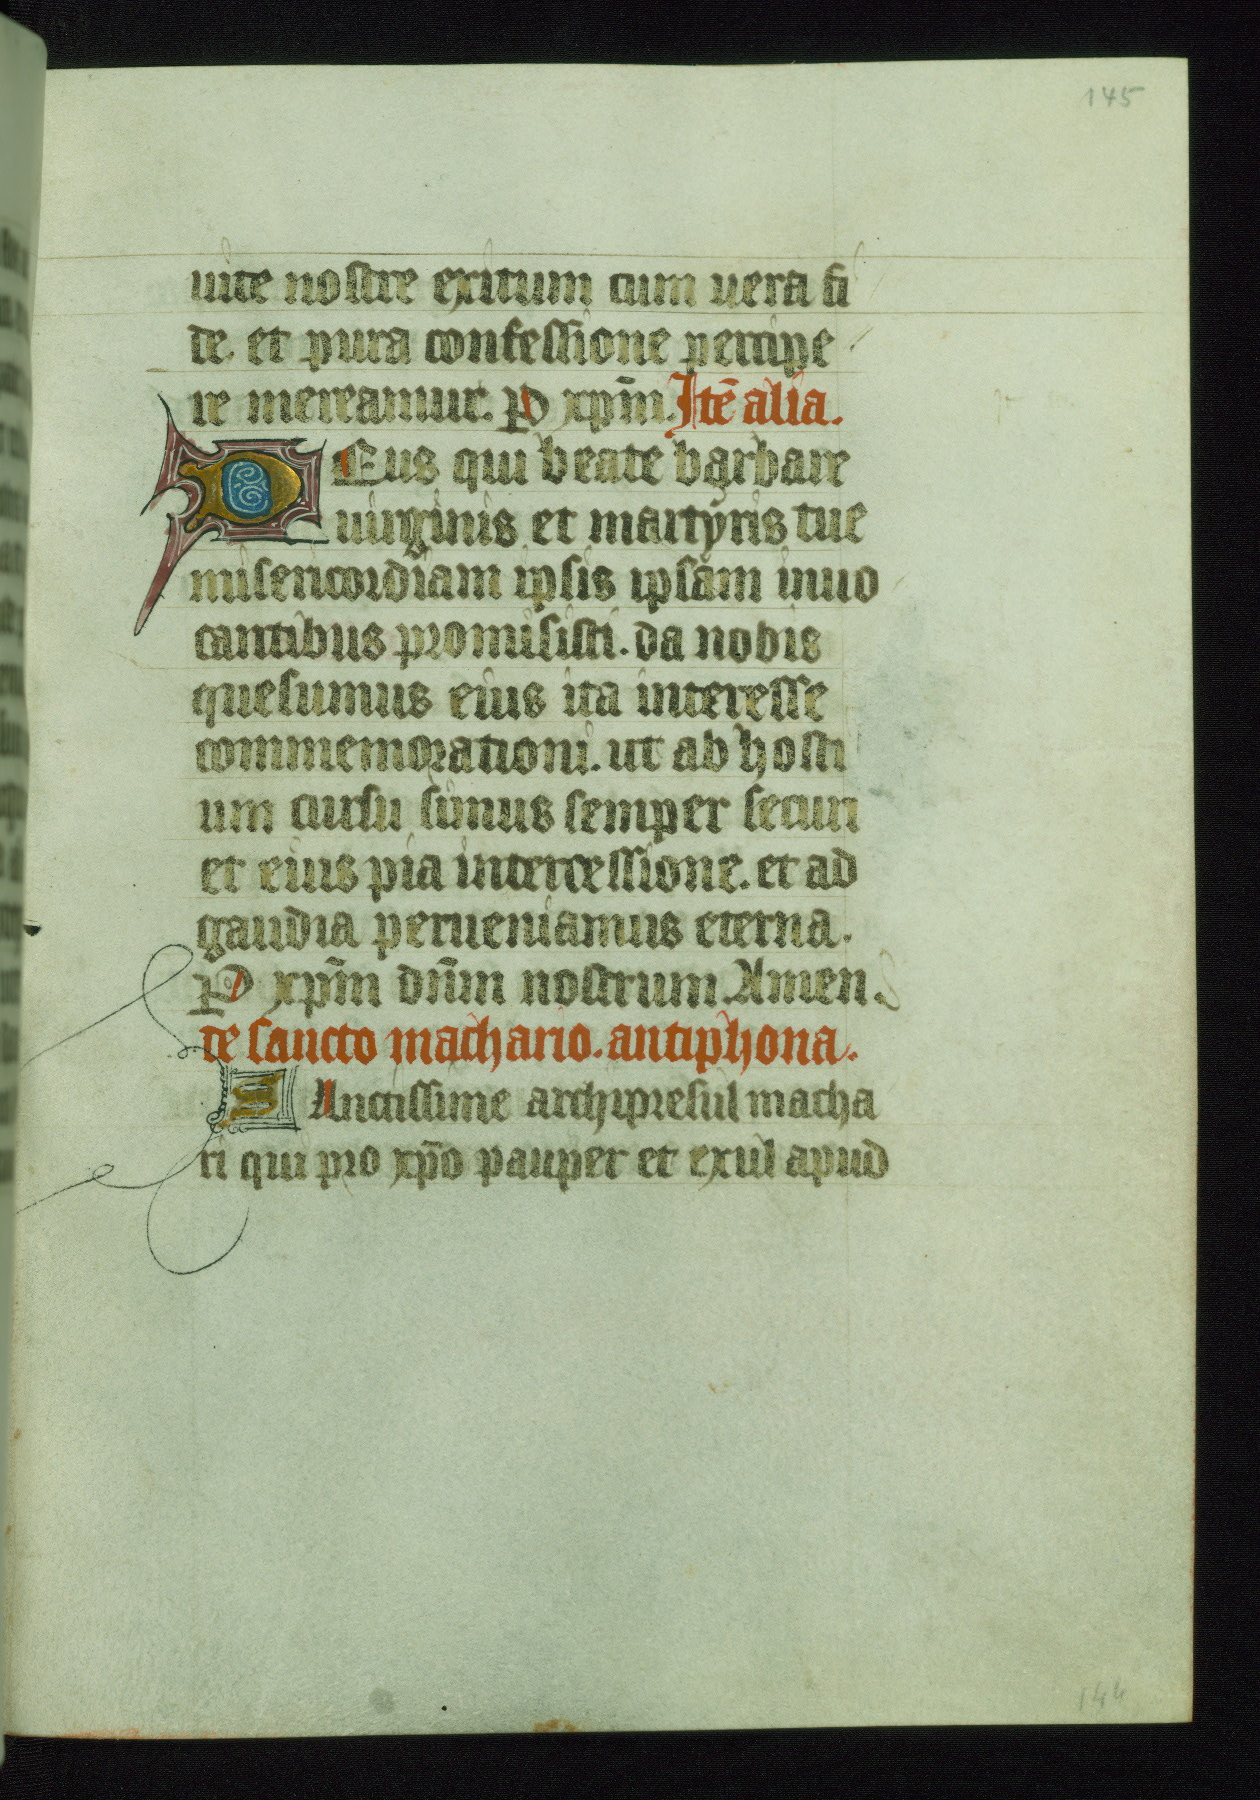 145
uite nostre exitum cum uera fi
de. et pura confessione percipe
re mereamur. P xp̄m. Itē alia.
DEus qui beate barbare
uirginis et martyris tue
misericordiam ipsis ipsam inuo
cantibus promisisti. da nobis
quesumus eius ita interesse
commemorationi. ut ab hosti
um cursu simus semper securi
et eius pia intercessione. et ad
gaudia perueniamus eterna.
P xp̄m dn̄m nostrum. Amen.
de sancto machario. antiphona.
SAnctissime archipresul macha
ri qui pro xp̄o pauper et exul apud
144